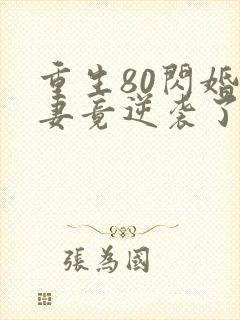 重生80閃婚
妻竟逆袭了
張為國